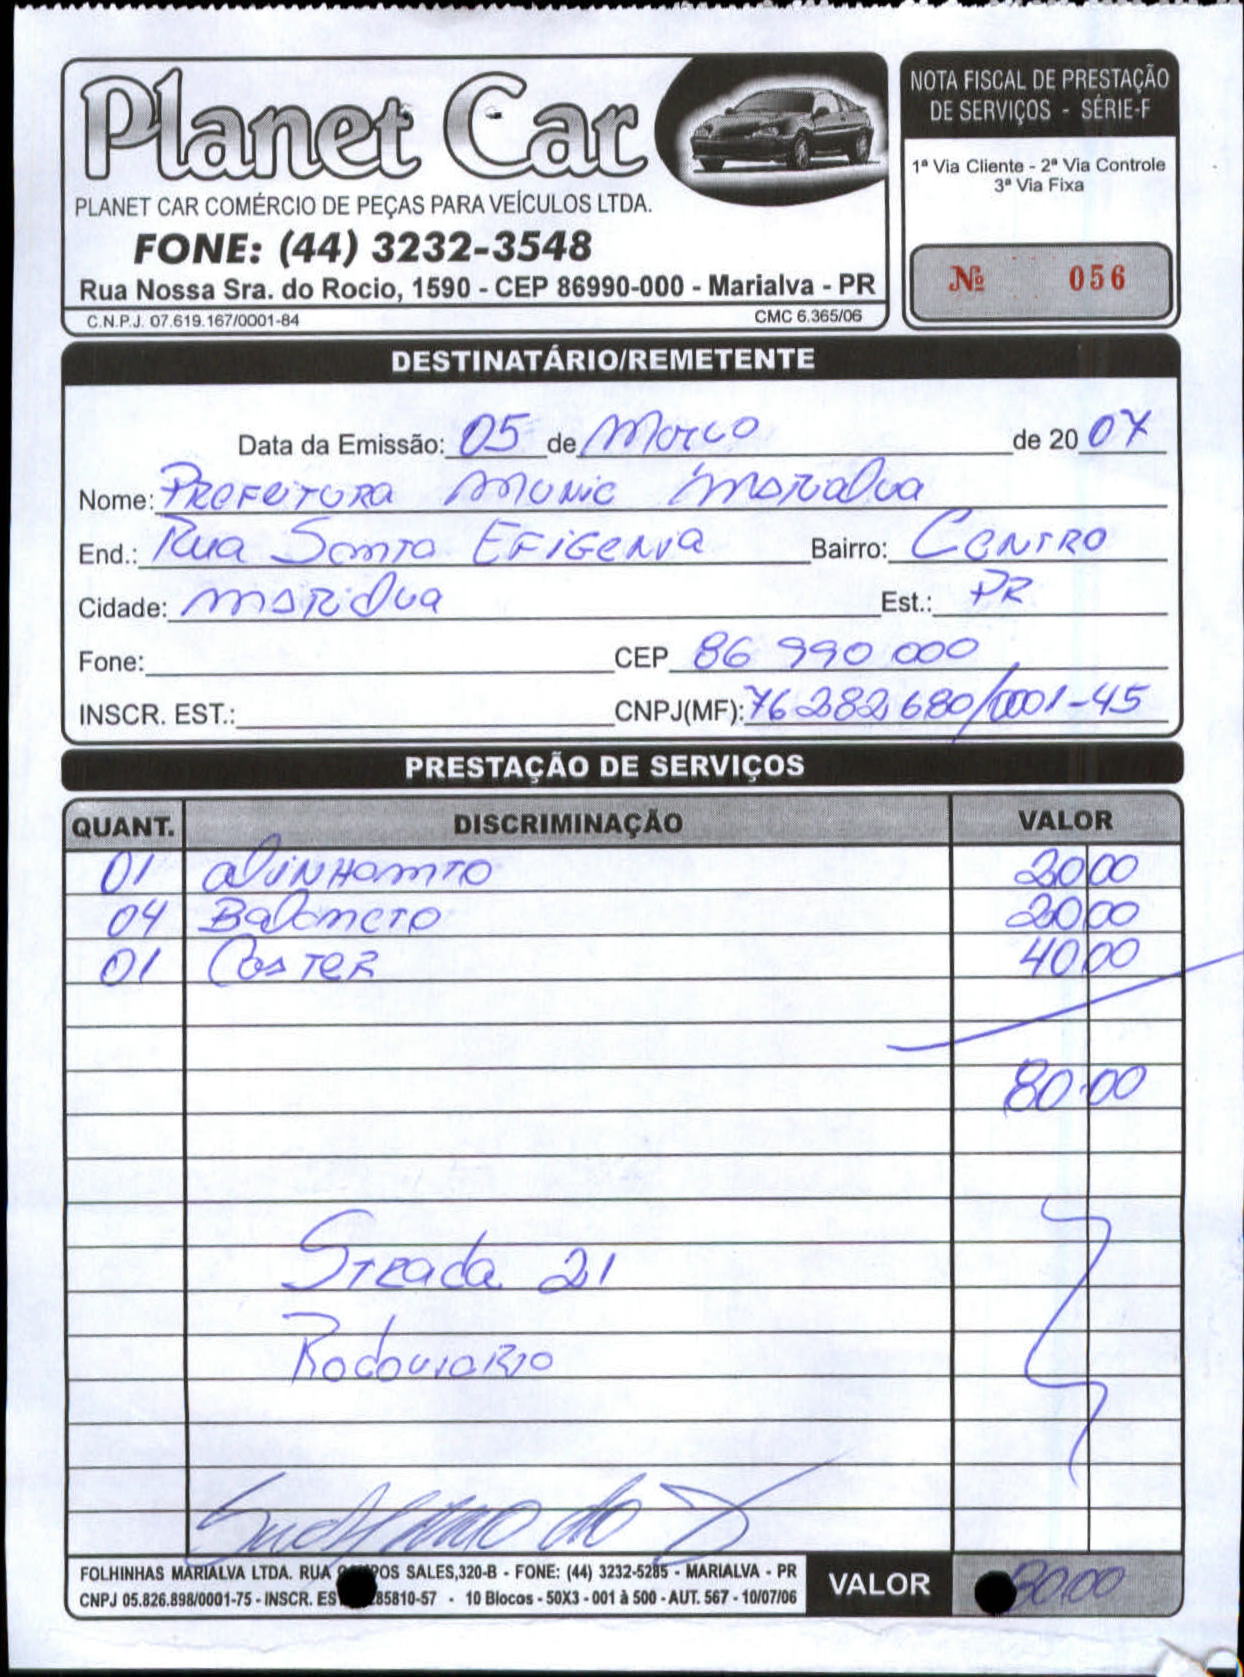 Planet Car
PLANET CAR COMÉRCIO DE PEÇAS PARA VEÍCULOS LTDA.
FONE: (44) 3232-3548
Rua Nossa Sra. do Rocio, 1590 - CEP 86990-000 - Marialva - PR
C.N.P.J. 07.619.167/0001-84 CMC 6.365/06
NOTA FISCAL DE PRESTAÇÃO
DE SERVIÇOS - SÉRIE-F
1ª Via Cliente - 2ª Via Controle
3ª Via Fixa
Nº 056
DESTINATÁRIO/REMETENTE
Data da Emissão: 05 de Março de 20 07
Nome: Prefeitura Munic Marialva
End.: Rua Santa Efigenia Bairro: Centro
Cidade: Marialva Est.: PR
Fone: CEP 86 990 000
INSCR. EST.: CNPJ(MF): 76 282 680/0001-45
PRESTAÇÃO DE SERVIÇOS
QUANT. DISCRIMINAÇÃO VALOR
01 alinhamto 20 00
04 Balanceto 20 00
01 Caster 40 00
80 00
Strada 21
Rodoviario
FOLHINHAS MARIALVA LTDA. RUA POS SALES,320-B - FONE: (44) 3232-5285 - MARIALVA - PR
CNPJ 05.826.898/0001-75 - INSCR. ES 85810-57 - 10 Blocos - 50X3 - 001 à 500 - AUT. 567 - 10/07/06
VALOR 80.00